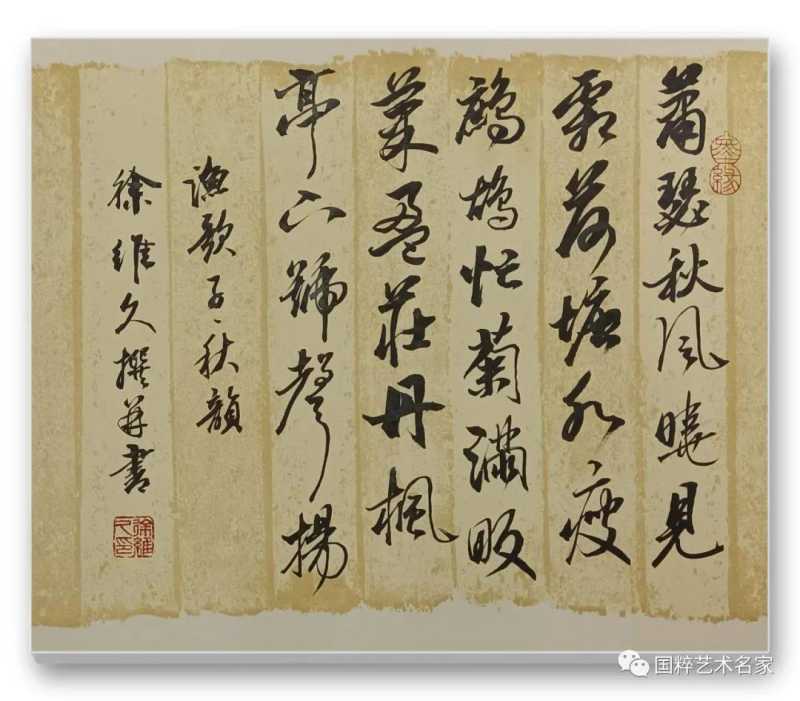 蕭瑟秋風曉見
霜荷塘水瘦
鷓鴣忙菊滿畈
菜盈莊丹楓
亭下號聲揚
漁歌子·秋韻
徐維久撰并書
徐維久印
国粹艺术名家